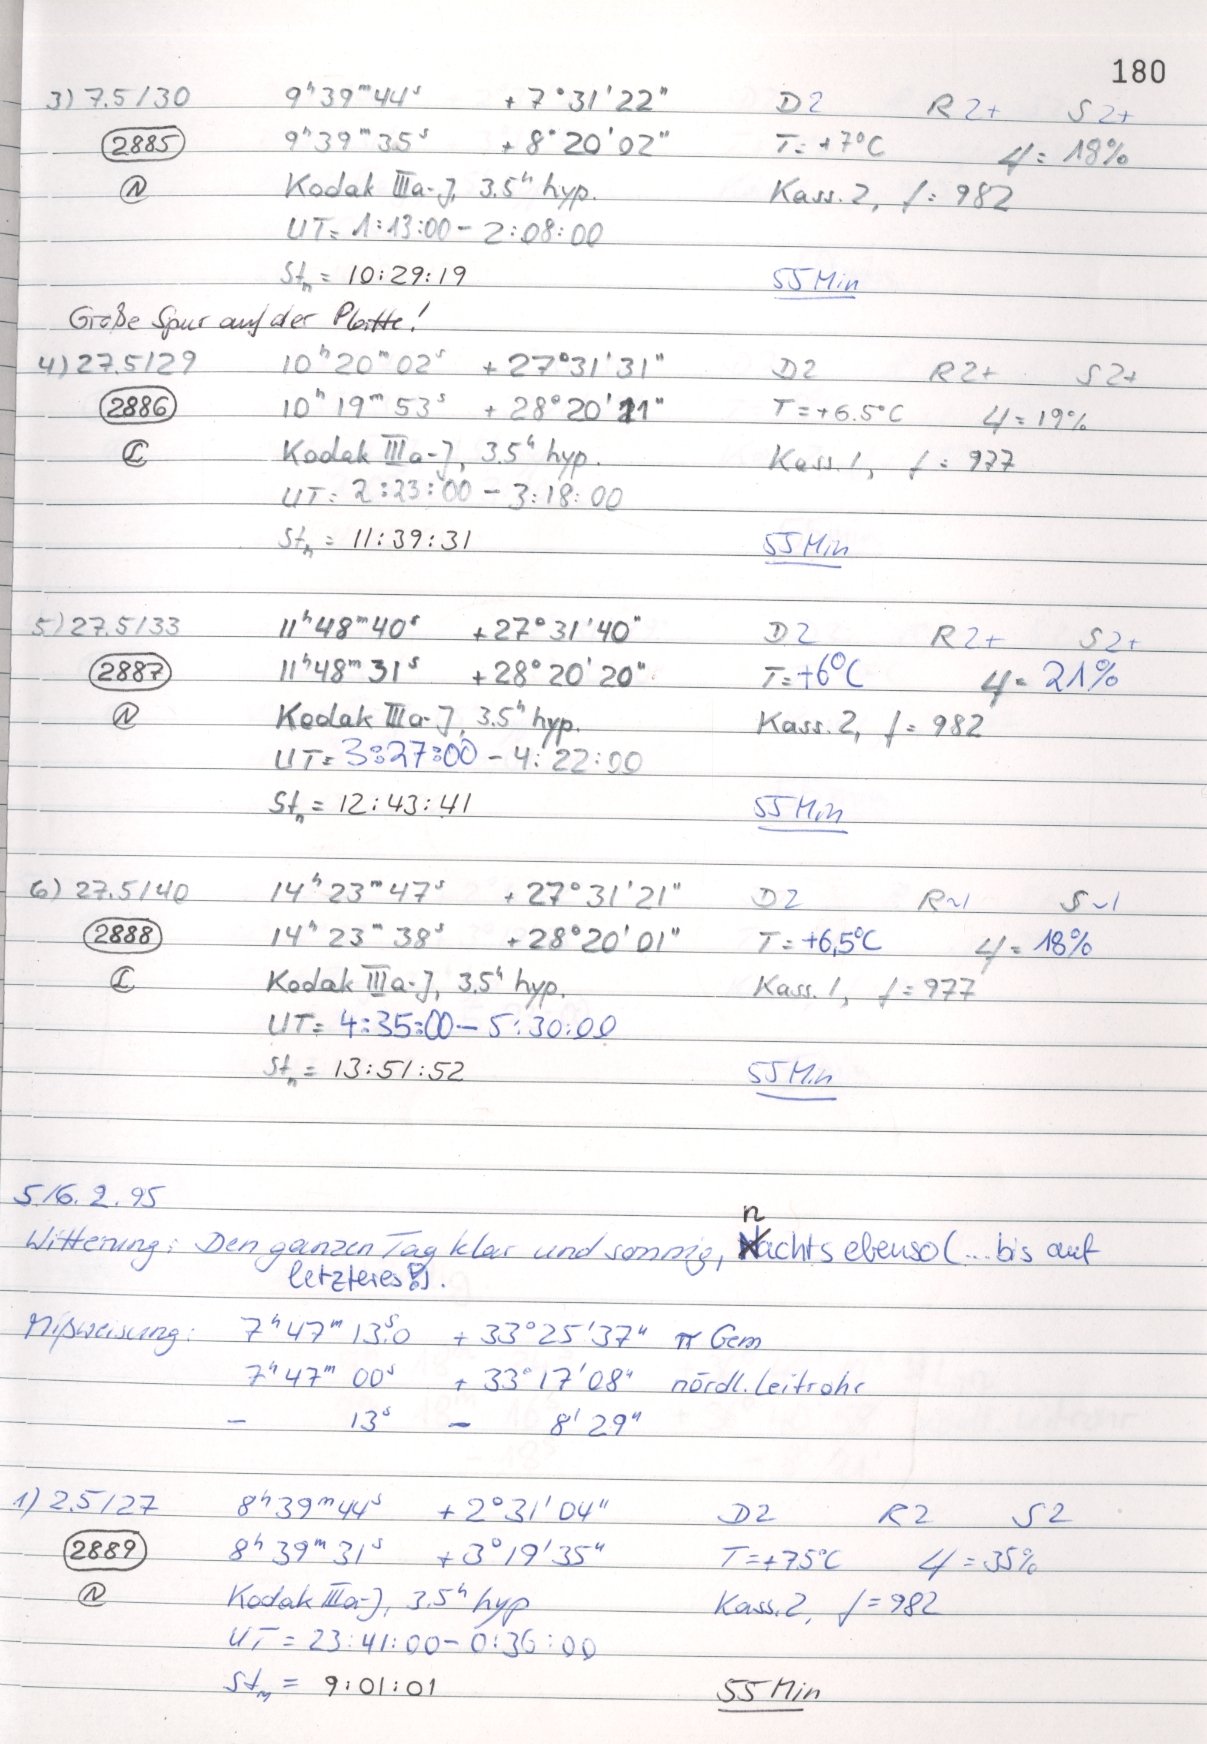 180
3) 7.5/30 9ʰ39ᵐ44ˢ +7°31'22" D2 R2+ S2+
2885 9ʰ39ᵐ35ˢ +8°20'02" T=+7°C φ=18%
N Kodak IIIa-J, 3.5ʰ hyp. Kass.2, f=982
UT=1:13:00-2:08:00
Stₘ=10:29:19 55 Min
Große Spur auf der Platte!
4) 27.5/29 10ʰ20ᵐ02ˢ +27°31'31" D2 R2+ S2+
2886 10ʰ19ᵐ53ˢ +28°20'11" T=+6.5°C φ=19%
C Kodak IIIa-J, 3.5ʰ hyp. Kass.1, f=977
UT=2:23:00-3:18:00
Stₘ=11:39:31 55 Min
5) 27.5/33 11ʰ48ᵐ40ˢ +27°31'40" D2 R2+ S2+
2887 11ʰ48ᵐ31ˢ +28°20'20" T=+6°C φ=21%
N Kodak IIIa-J, 3.5ʰ hyp. Kass.2, f=982
UT=3:27:00-4:22:00
Stₘ=12:43:41 55 Min
6) 27.5/40 14ʰ23ᵐ47ˢ +27°31'21" D2 R~1 S~1
2888 14ʰ23ᵐ38ˢ +28°20'01" T=+6,5°C φ=18%
C Kodak IIIa-J, 3.5ʰ hyp. Kass.1, f=977
UT=4:35:00-5:30:00
Stₘ=13:51:52 55 Min
5/6.2.95
Witterung: Den ganzen Tag klar und sonnig, nachts ebenso (...bis auf
letzteres!).
Mißweisung: 7ʰ47ᵐ13ˢ.0 +33°25'37" π Gem
7ʰ47ᵐ00ˢ +33°17'08" nördl. Leitrohr
- 13ˢ - 8'29"
1) 2.5/27 8ʰ39ᵐ44ˢ +2°31'04" D2 R2 S2
2889 8ʰ39ᵐ31ˢ +3°19'35" T=+7.5°C φ=35%
N Kodak IIIa-J, 3.5ʰ hyp Kass.2, f=982
UT=23:41:00-0:36:00
Stₘ=9:01:01 55 Min